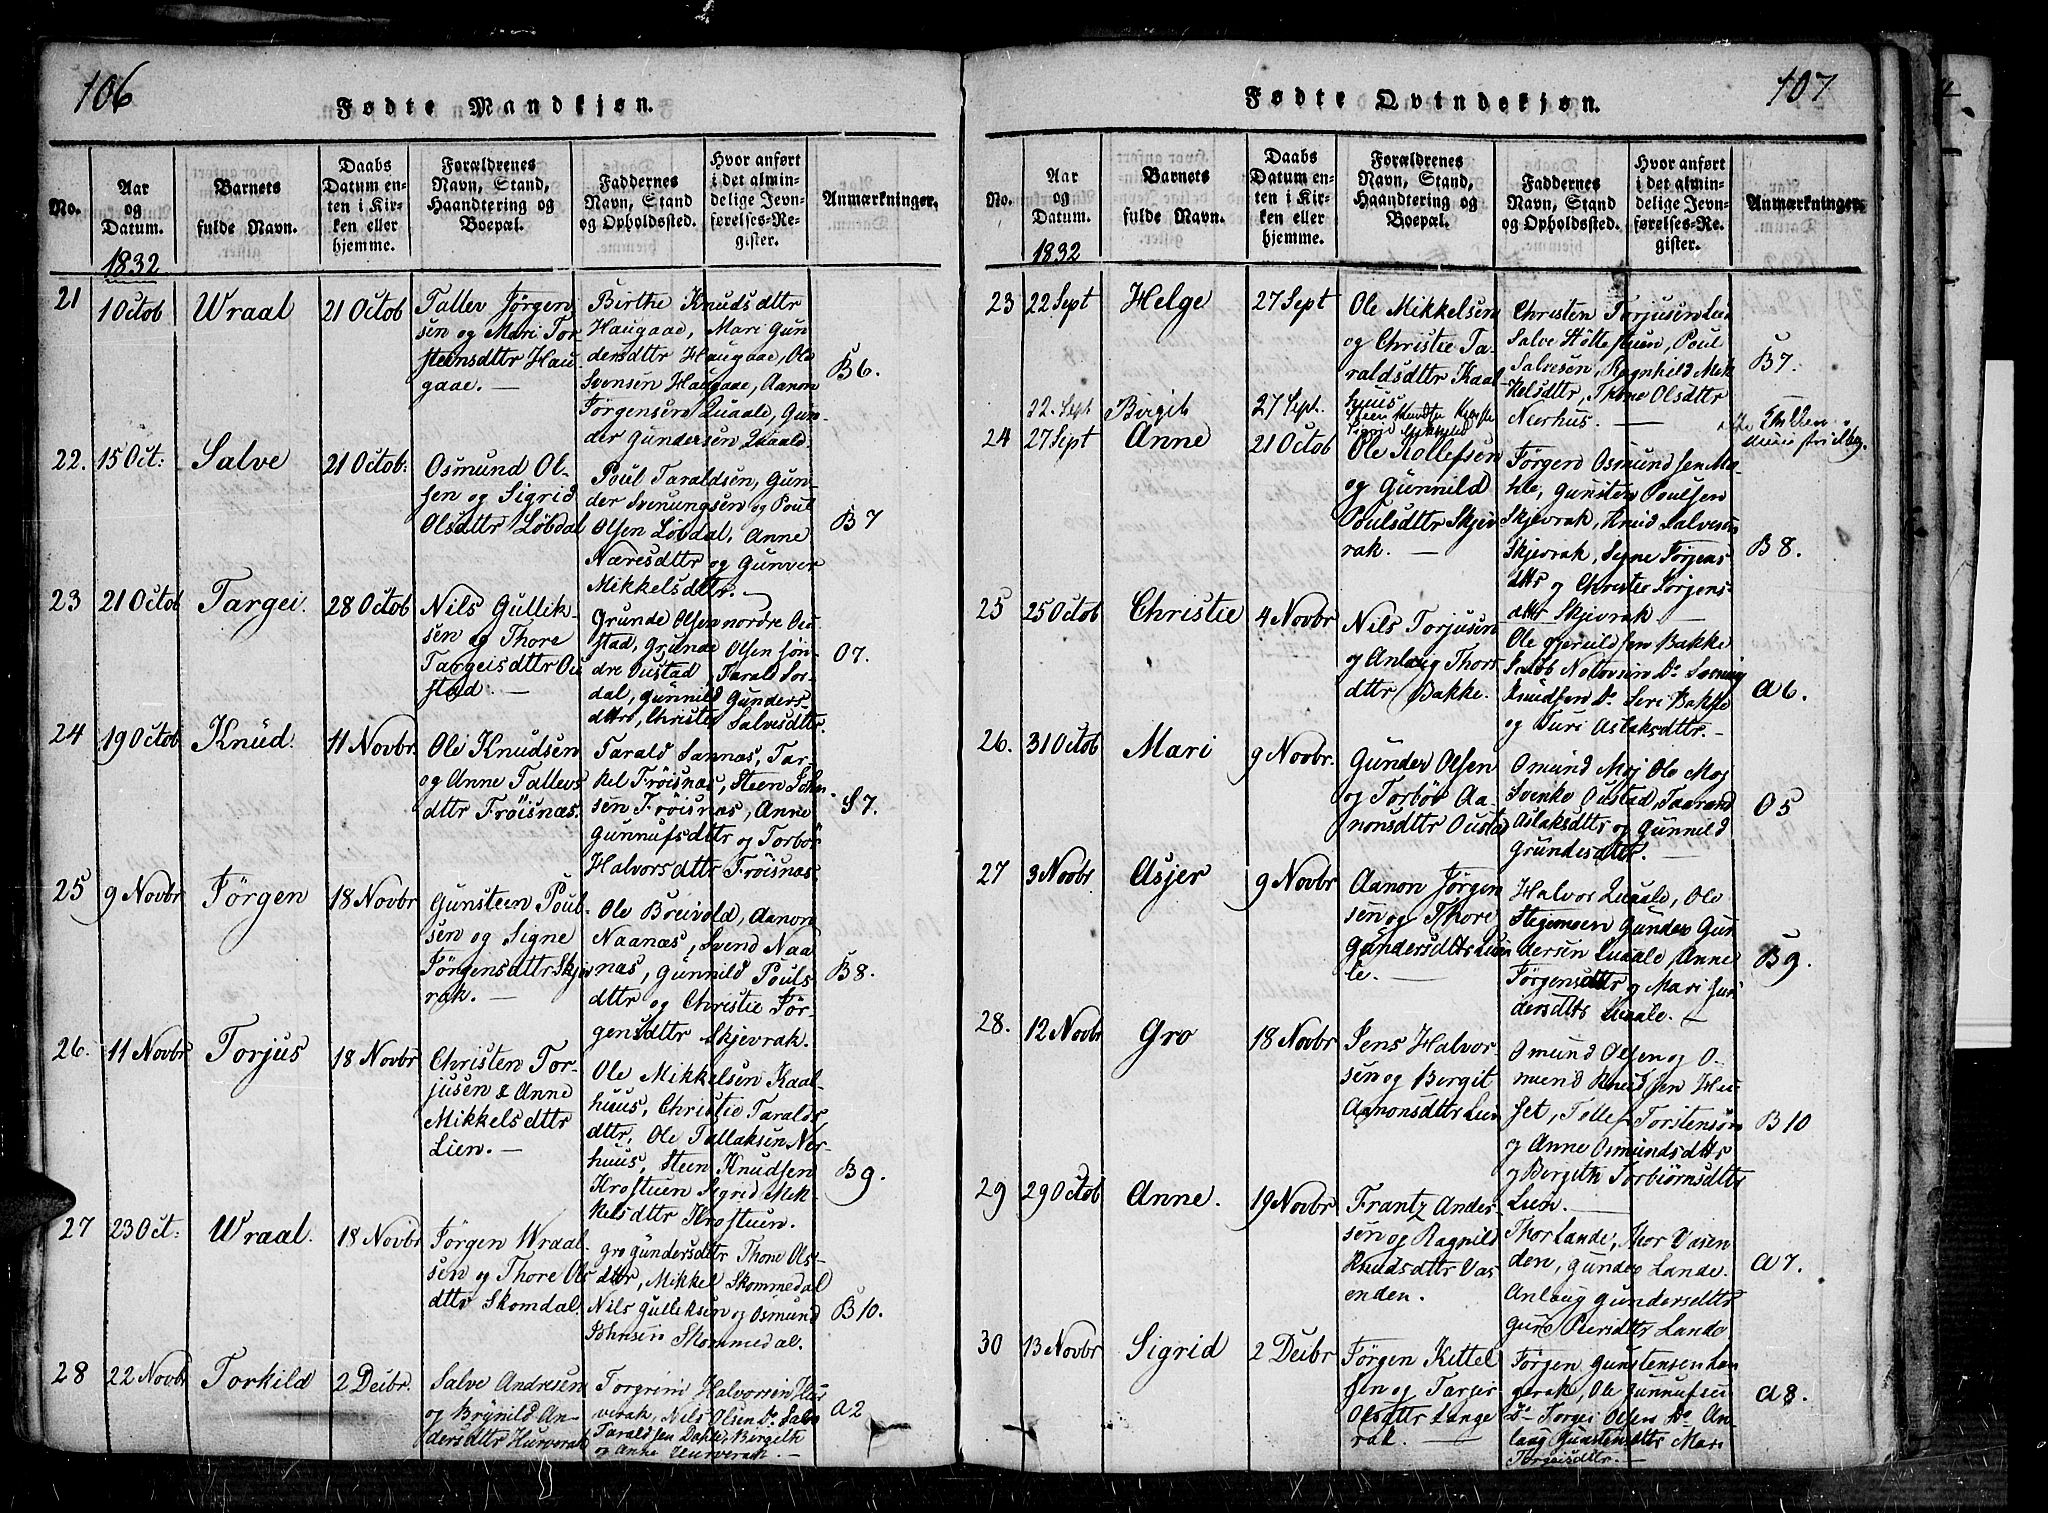 106
Fødte Mandkjøn.
No.
Aar
og
Datum.
Barnets
fulde Navn.
Daabs
Datum en-
ten i Kir-
ken eller
hjemme.
Forældrenes
Navn, Stand,
Haandtering og
Boepæl.
Faddernes
Navn, Stand
og Opholdssted.
Hvor anført
i det almin-
delige Jevn-
førelses-Re-
gister.
Anmærkninger.
1832
21
1 Octob
Wraal
21 Octob
Tallev Jörgen
sen og Mari Tor
steensdttr Hau
gaae. —
Birthe Knudsdttr
Haugaae, Mari Gun
dersdttr Haugaae, Ole
Svensen Haugaae, Aanon
Jörgensen Quaale, Gun
der Gundersen Quaale.
B 6.
22.
15 Oct:
Salve
21 Octob:
Osmund Ol-
sen og Sigrid
Olsdttr Löbdal
Poul Taraldsen, Gun-
der Svenungsen og Poul
Olsen Löbdal, Anne
Næresdttr og Gunver
Mikkelsdttr. —
B 7
23
21 Octob
Targei.
28 Octob
Nils Gullik-
sen og Thore
Targeisdttr Ou
stad. —
Grunde Olsen nordre Ou-
stad, Grunde Olsen sön-
dre Oustad Tarald Sor-
dal, Gunnild Gunders-
dttr, Christie Salvesdttr.
O 7.
24
19 Octob
Knud.
11 Novbr.
Ole Knudsen
og Anne Tallevs
dttr Fröisnæs.
Tarald Sannæs, Tar-
kel Fröisnæs, Steen Johan-
sen Fröisnæs, Anne
Gunnufsdttr og Torbör
Halvorsdttr Fröisnæs.
S 7.
25
9 Novbr
Jörgen
18 Novbr
Gunsteen Poul-
sen og Signe
Jörgensdttr Skjev
rak. —
Ole Breivold, Aanon
Naanæs, Svend Naa
næs, Gunnild Pouls
dttr og Christie Jör-
gensdttr Skjevrak.
B 8.
26.
11 Novbr
Torjus
18 Novbr
Christen Tor-
jusen & Anne
Mikkelsdttr
Lien. —
Ole Mikkelsen Kaal-
huus, Christie Taralds
dttr, Ole Tallaksen Ner-
huus, Steen Knudsen
Krostuen Sigrid Mik-
kelsdttr Krostuen.
B 9.
27
23 Oct:
Wraal.
18 Novbr
Jörgen Wraal-
sen og Thore Ols
dttr Skomdal,
Gro Gundersdttr Thone Ols-
dttr, Mikkel Skommedal
Nils Gulleksen og Osmund
Johnsen Skommedal.
B 10.
28
22 Novbr
Torkild
2 Decbr.
Salve Andresen
og Brÿnild An-
dersdttr Hurverak
Torgrim Halvorsen Hur
verak, Nils Olsen Do. Salve
Taraldsen Dahle, Bergith
og Anne Hurverak. —
A 2
107
Fødte Qvindekjøn.
No.
Aar
og
Datum.
Barnets
fulde Navn.
Daabs
Datum en-
ten i Kir-
ken eller
hjemme.
Forældrenes
Navn, Stand,
Haandtering og
Boepæl.
Faddernes
Navn, Stand
og Opholdssted.
Hvor anført
i det almin-
delige Jevn-
førelses-Re-
gister.
Anmærkninger.
1832
23
22 Sept
Helge
27 Sept
Ole Mikkelsen
og Christie Ta-
raldsdttr Kaal-
huus
Christen Torjusen Lien
Salve Höltestuen, Poul
Salvesen, Ragnhild Mik
kelsdttr, Thone Olsdttr
Nierhus. —
B 7.
22. Sept
Birgit
27 Sept.
Steen Knudsen Kroste
Sigrid
24
27 Sept
Anne
21 Octob
Ole Rollefsen
og Gunnild
Poulsdttr Skjev
rak. —
Jörgen Osmundsen Ma-
hle, Gunsten Poulsen
Skjevrak, Knud Salvesen
Skjevrak, Signe Jörgens
dttr og Christie Jörgens-
dttr Skjevrak —
B 8.
25
25 Octob
Christie
4 Novbr
Nils Torjusen
og Anlaug Thors
dttr Bakke.
Ole Gjeruldsen Bakke
Do. Svening
Knudsen Do. Seri Bakke
og Turi Aslaksdttr. —
A 6.
26.
31 Octob
Mari
9 Novbr.
Gunder Olsen
og Torbör Aa-
nonsdttr Oustad
Omund Moj Ole Moj
Svenke Oustad, Taarand
Aslaksdttr og Gunnild
Grundesdttr. —
O 5
27
3 Novbr
Asjer
9 Novbr
Aanon Jörgen
sen og Thore
Gundersdttr Quaa
le. —
Halvor Quaale, Ole
Stejensen Gunder Gun
dersen Quaale, Anne
Jörgensdttr og Mari Gun
dersdttr Quaale. —
B 9.
28.
12 Novbr
Gro
18 Novbr
Jens Halvor-
sen og Bergit
Aanonsdttr Lien
Omund Olsen og O-
mund Knudsen Hu-
set, Tollef Torstensön
og Anne Osmundsdttr
og Bergith Torbiörnsdttr
Lien. —
B 10
29
29 Octob
Anne.
19 Novbr
Frantz Ander-
sen og Ragnild
Knudsdttr Vas
enden.
Thor Lande, Thor Vasen
den, Gunder Lande.
Anlaug Gundersdttr
Guro Peersdttr Lande
A 7.
30
13 Novbr
Sigrid
2 Decbr
Jörgen Kittel
sen og Targier
Olsdttr Lange
rak. —
Jörgen Gunstensen Lan
gerak, Ole Gunnufsen
Do. Torgei Olsen Do. An-
laug Gunstensdttr Mari
Torgeisdttr. —
A 8.